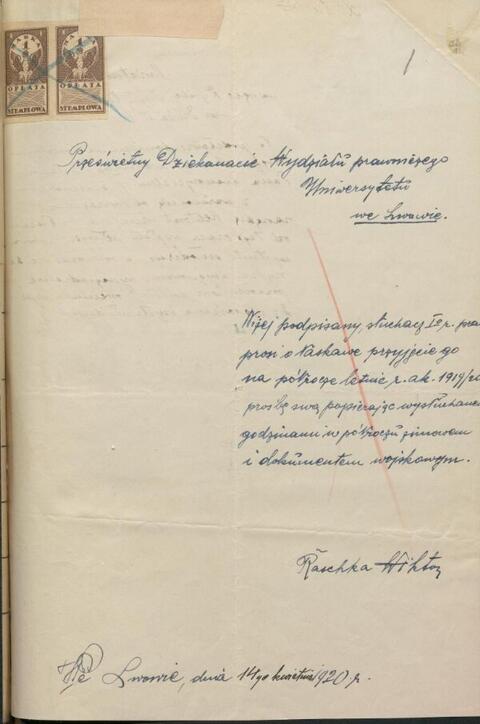 1
MARKA
1
OPŁATA
STEMPLOWA
MARKA
1
OPŁATA
STEMPLOWA
Prześwietny Dziekanacie Wydziału prawniczego
Uniwersytetu
we Lwowie.
Niżej podpisany, słuchacz I r. pra
prosi o łaskawe przyjęcie go
na półrocze letnie r. ak. 1919/20
prośbę swą popierając wysłuchanem
godzinami w półroczu zimowem
i dokumentem wojskowym.
Raschka Wiktor
We Lwowie, dnia 14go kwietnia 1920 r.